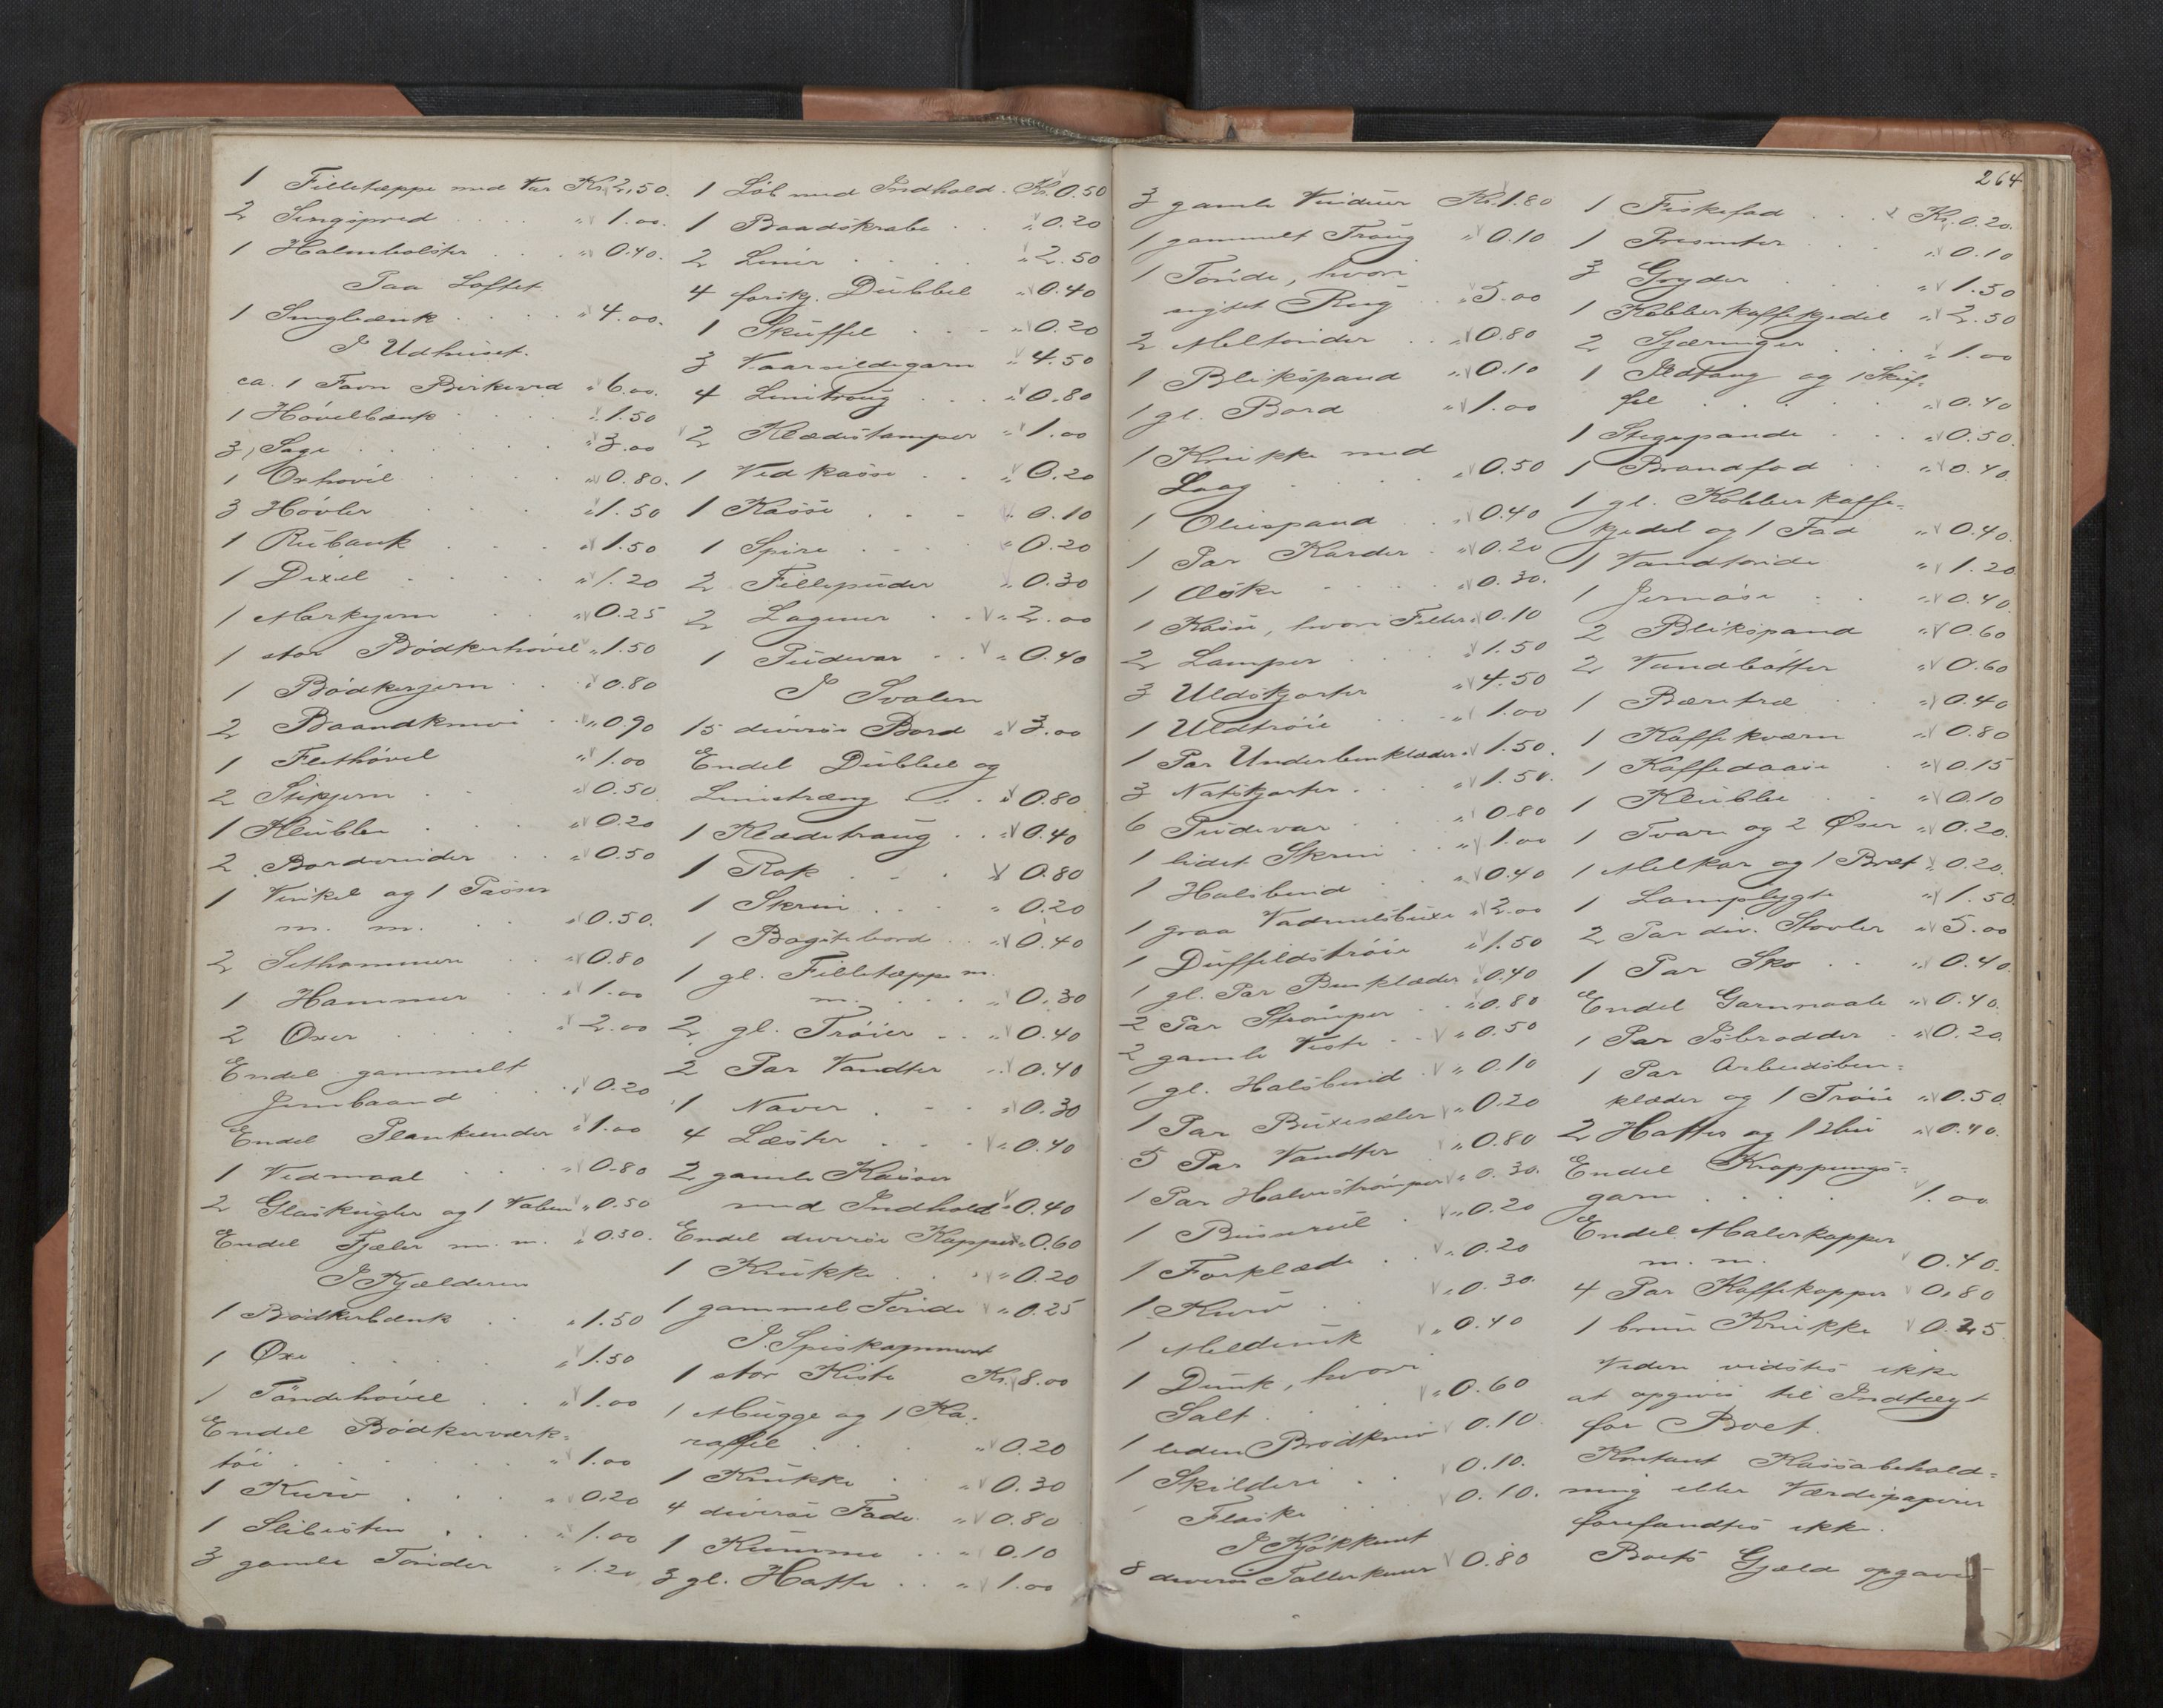 1 Filletæppe med Var Kr. 2.50.
2 Sengspred . . . . " 1.00.
1 Halmbolster . . . " 0.40.
Paa Loftet
1 Sengbænk . . . . " 4.00.
I Udhuset.
ca. 1 Favn Birkeved " 6.00.
1 Høvelbænk . . . . " 1.50
3 Sage . . . . . " 3.00
1 Oxhøvel . . . . " 0.80.
3 Høvler . . . . " 1.50
1 Rubank . . . . " 1.50
1 Dixel . . . . " 1.20
1 Merkejern . . . " 0.25
1 stor Bødkerhøvel " 1.50
1 Bødkerjern . . " 0.80
2 Baandknive . . " 0.90
1 Flethøvel " 1.00
2 Stikjern . . " 0.50
1 Klubbe . . . " 0.20
2 Bordvrider . . " 0.50
1 Vinkel og 1 Passer
m. m. . . . " 0.50.
2 Sethammere . . " 0.80
1 Hammer . . " 1.00
2 Oxer . . . " 2.00
Endel gammelt
Jernbaand . . . " 0.20
Endel Plankeender " 1.00
1 Vedmaal . . . " 0.80
2 Glaskugler og 1 Vaben " 0.50
Endel Fjæler m. m. " 0.30.
I Kjælderen
1 Bødkerbænk . . " 1.50
1 Øxe . . . . " 1.50
1 Tøndehøvel . . " 1.00
Endel Bødkerværk=
tøi . . . . . " 1.00
1 Kurv . . . . " 0.20
1 Slibesten . . . " 1.00
3 gamle Tønder " 1.20
1 Løb med Indhold. Kr. 0.50
1 Baadskrabe . . " 0.20
2 Liner . . . . " 2.50
4 forskj. Dubbel " 0.40
1 Skuffel . . . " 0.20
3 Vaarsildegarn " 4.50
4 Linetroug . . . " 0.80
2 Klædestamper " 1.00
1 Vedkasse . . " 0.20
1 Kasse . . . " 0.10
1 Spire . . . . " 0.20
2 Fillepuder " 0.30
2 Lagener . . " 2.00
1 Pudevar . . " 0.40
I Svalen
15 diverse Bord " 3.00
Endel Dubbel og
Linestræng . . . " 0.80
1 Klædetraug . . " 0.40
1 Rok . . . " 0.80
1 Skrin . . . " 0.20
1 Bagstebord . . " 0.40
1 gl. Filletæppe m.
m. . . . . " 0.30
2 gl. Trøier . . " 0.40
2 Par Vandter . " 0.40
1 Naver . . . " 0.30
4 Læster . . . " 0.40
2 gamle Kasser
med Indhold " 0.40
Endel diverse Kopper " 0.60
1 Krukke . . . " 0.20
1 gammel Tønde " 0.25
I Spiskammeret
1 stor Kiste Kr. 8.00
1 Mugge og 1 Ka=
raffel . . . . " 0.20
1 Krukke . . " 0.30
4 diverse Fade. " 0.80
1 Kumme . . " 0.10
3 gl. Hatte . . " 1.00
264
3 gamle Vinduer Kr. 1.80
1 gammelt Troug " 0.10
1 Tønde, hvori
sigtet Rug . . " 5.00
2 Meltønder . . " 0.80
1 Blikspand " 0.10
1 gl. Bord " 1.00
1 Krukke med
Laag . . . . " 0.50
1 Oliespand . . " 0.40
1 Par Karder . " 0.20
1 Æske . . . . " 0.30.
1 Kasse, hvori Filler " 0.10
2 Lamper . . . " 1.50
3 Uldskjorter " 4.50
1 Uldtrøie . . " 1.00
1 Par Underbenklæder " 1.50.
3 Natskjorter . . . " 1.50.
6 Pudevar . . " 0.80
1 lidet Skrin . . " 1.00
1 Halsbind . . " 0.40
1 graa Vadmelsbuxe " 2.00
1 Duffeldstrøie " 1.50
1 gl. Par Benklæder " 0.40
2 Par Strømper . . " 0.80
2 gamle Veste . . " 0.50
1 gl. Halsbind . " 0.10
1 Par Buxesæler " 0.20
5 Par Vandter " 0.80
1 Par Halvestrømper " 0.30.
1 Busserul . " 0.20
1 Forklæde . " 0.20
1 Kurv . . " 0.30
1 Meldunk " 0.40
1 Dunk, hvori
Salt . . . . " 0.60
1 liden Brødkniv 0.10.
1 Skilderi . . 0.10.
1 Flaske . . 0.10.
I Kjøkkenet
8 diverse Tallerkener 0.80
1 Fiskefad . . . Kr. 0.20.
1 Presenter . . . " 0.10
3 Gryder . . . " 1.50
1 Kobberkaffekjedel " 2.50
2 Skjæringer . . " 1.00
1 Ildtang og 1 Skuf=
fel . . . . . " 0.40
1 Stegepande . . " 0.50.
1 Brandfad . . " 0.40.
1 gl. Kobberkaffe=
kjedel og 1 Fad " 0.40.
1 Vandtønde " 1.20
1 Jernøse . . " 0.40.
2 Blikspand " 0.60
2 Vandbøtter " 0.60
1 Bæretræ . " 0.40
1 Kaffekværn " 0.80
1 Kaffedaase . " 0.15
1 Klubbe . . " 0.10
1 Tvare og 2 Øser " 0.20.
1 Melkar og 1 Bræt " 0.20.
1 Lamplygte " 1.50.
2 Par div. Støvler " 5.00
1 Par Sko . . " 0.40.
Endel Garnnaale " 0.40.
1 Par Isbrodder . " 0.20.
1 Par Arbeidsben=
klæder og 1 Trøie " 0.50.
2 Hatter og 1 Hue " 0.40.
Endel Kroppungs=
garn . . . . 1.00.
Endel Malerkopper
m. m. 0.40.
4 Par Kaffekopper 0.80
1 brun Krukke 0.25.
Videre vidstes ikke
at opgives til Indtægt
for Boet.
Kontant Kassabehold=
ning eller Værdipapirer
forefandtes ikke.
Boets Gjæld opgaves